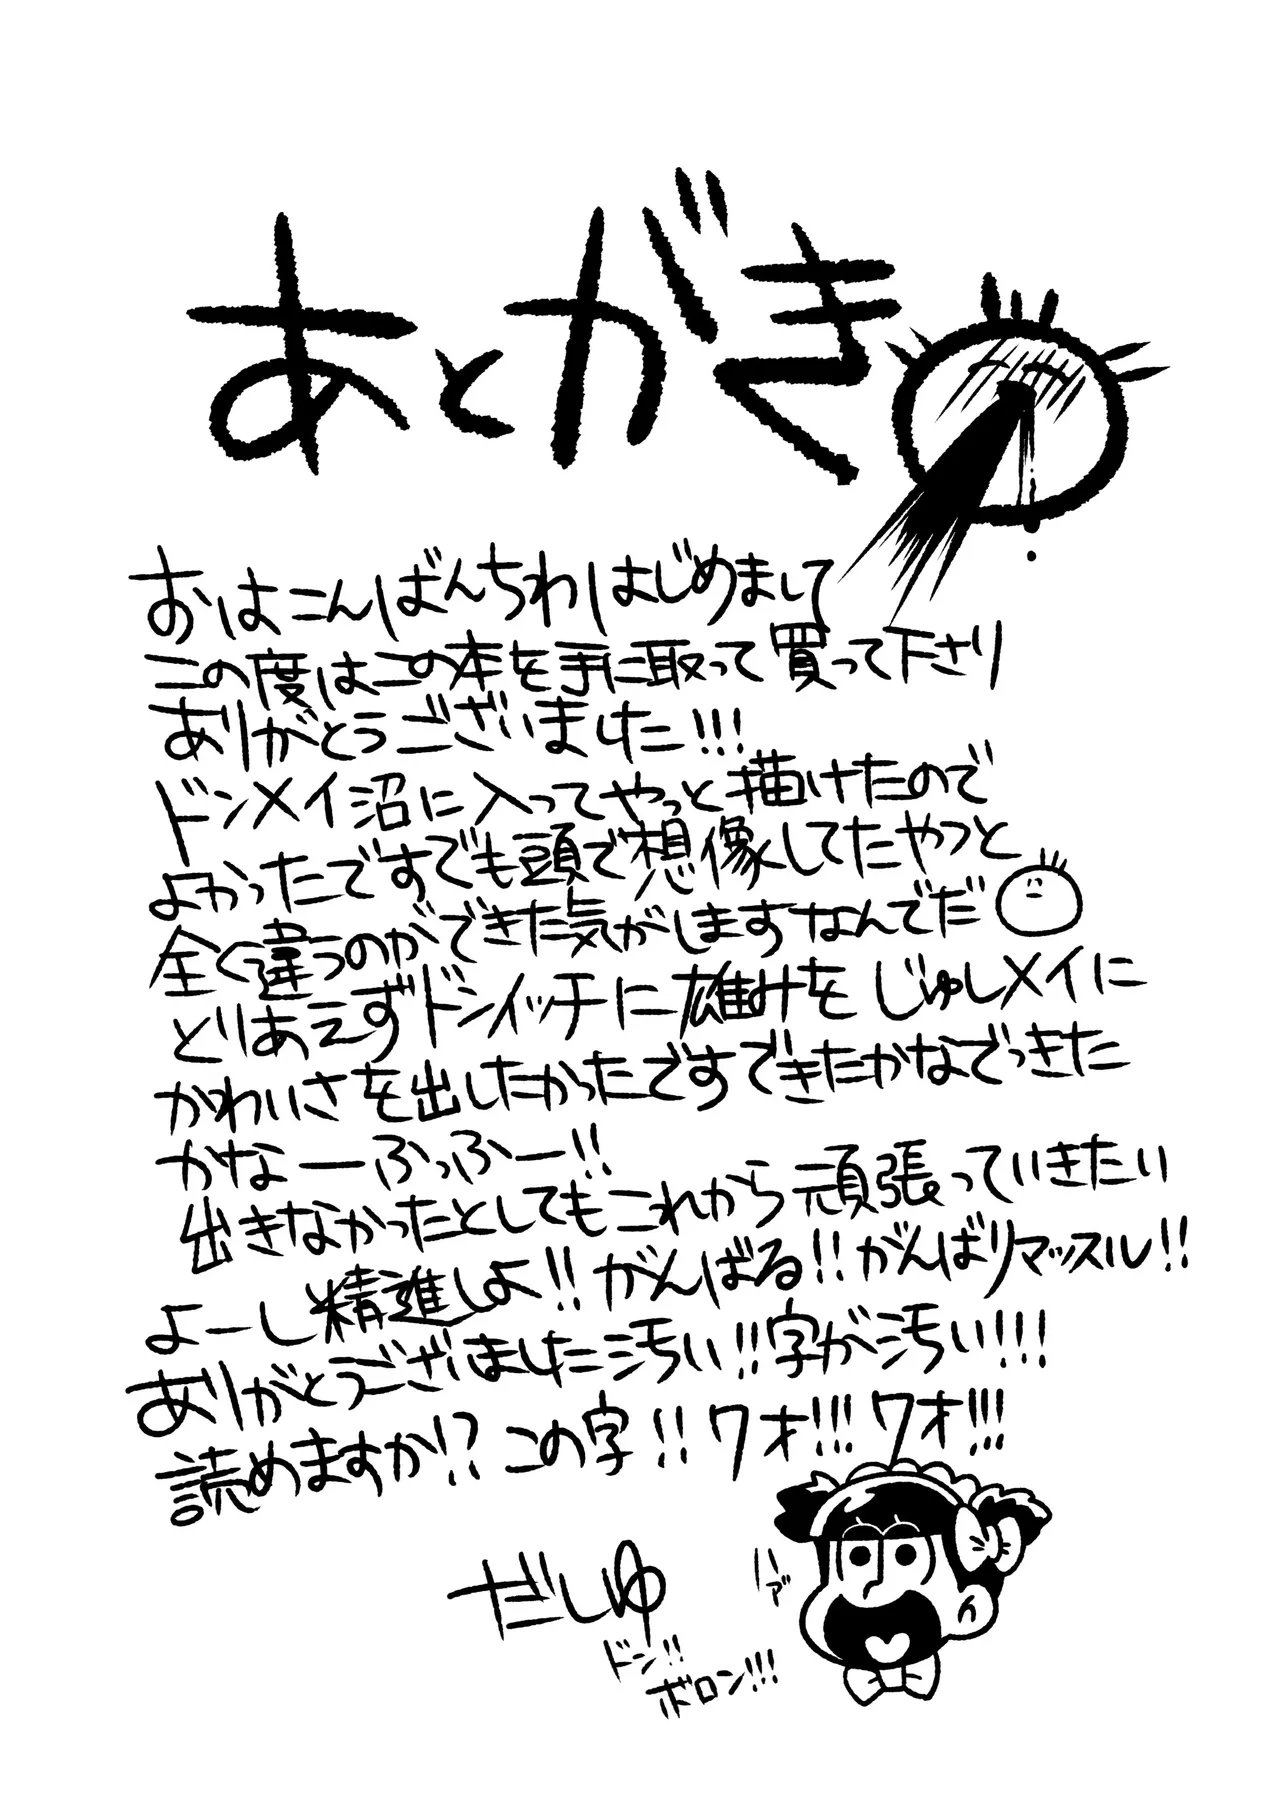 あとがき
おはこんばんちわはじめまして
この度はこの本を手に取って買って下さり
ありがとうございました!!!
ドンメイ沼に入ってやっと描けたので
よかったですでも頭で想像してたやつと
全く違うのができた気がしますなんでだ
とりあえずドンイッチに雄みを じゅしメイに
かわいさを出したかったですできたかなでっきた
かなーふっふー!!
出きなかったとしてもこれから頑張っていきたい
よーし精進しよ!! がんばる!! がんばりマッスル!!
ありがとうございました汚い!!字が汚い!!!
読めますか!? この字!! ワオ!!! ワオ!!!
だしゆ
ドン!!
ボロン!!!